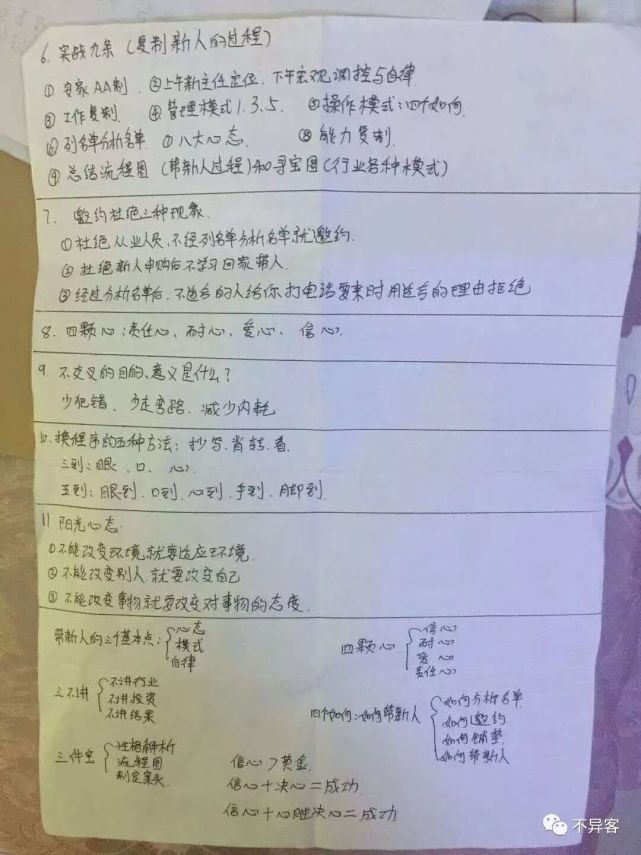 6. 实战九条（复制新人的过程）
① 安家AA制. ②上午新主任定位，下午宏观调控与自律
③ 工作复制. ④ 管理模式1.3.5. ⑤操作模式：四个如何.
⑥ 列名单分析名单. ⑦ 八大心态. ⑧ 能力复制.
⑨ 总结流程图（带新人过程）和寻宝图（行业各种模式）
7. 邀约杜绝三种现象.
①杜绝从业人员，不经列名单分析名单就邀约.
② 杜绝新人申购后不学习回家带人.
③ 经过分析名单后，不适合的人给你打电话要来时用适合的理由拒绝
8. 四颗心：责任心、耐心、爱心、信心.
9. 不交叉的目的、意义是什么？
少犯错，少走弯路，减少内耗
10. 换程序的五种方法：抄.写.背.转.看.
三到：眼、口、心.
五到：眼到、口到、心到、手到、脚到.
11. 阳光心态.
①不能改变环境就要适应环境.
② 不能改变别人.就要改变自己
③ 不能改变事物就要改变对事物的态度.
带新人的三个基本点：
心态
模式
自律
四颗心
信心
耐心
爱心
责任心
三不讲
不讲行业
不讲投资
不讲结果
四个如何：如何带新人
如何分析名单
如何邀约
如何铺垫
如何带新人
三件宝
性格解析
流程图
制定案头.
信心>黄金.
信心+决心=成功
信心+心胜决心=成功
不异客